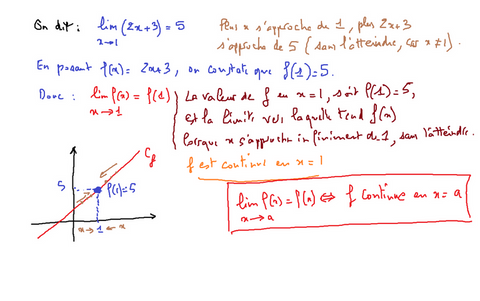 On dit : lim (2x+3) = 5
x→1
Plus x s'approche de 1, plus 2x+3
s'approche de 5 (sans l'atteindre, car x≠1).
En posant f(x) = 2x+3, on constate que f(1)=5.
Donc : lim f(x) = f(1)
x→1
La valeur de f en x=1, soit f(1)=5,
est la limite vers laquelle tend f(x)
lorsque x s'approche infiniment de 1, sans l'atteindre.
f est continue en x=1
C_f
5
f(1)=5
x→ 1 ←x
lim f(x) = f(a) ⇔ f continue en x=a
x→a